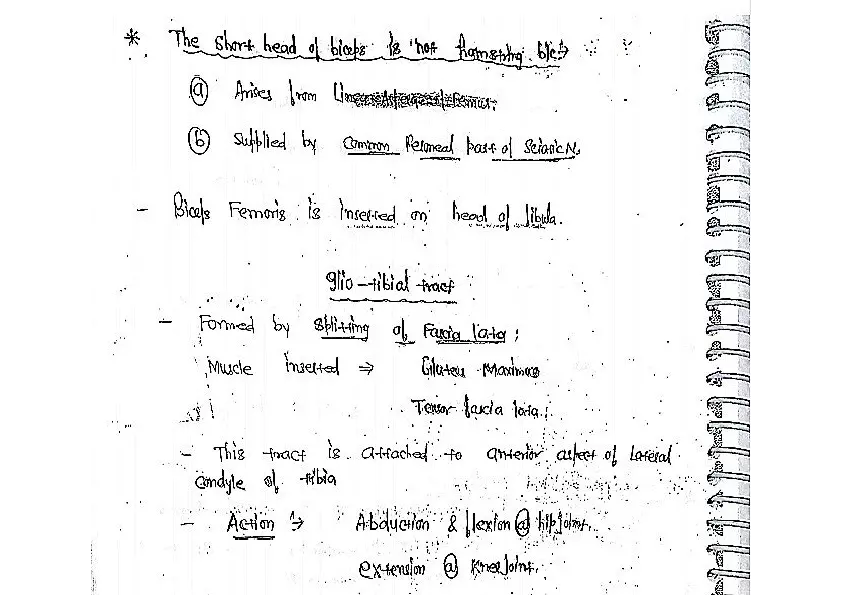 * The short head of biceps is not hamstring b/c →
(a) Arises from Linea
(b) Supplied by Common Peroneal part of Sciatic N.
- Biceps Femoris is inserted on head of fibula.
Ilio-tibial tract
- Formed by splitting of Fascia lata;
Muscle inserted ⇒ Gluteus Maximus
Tensor fascia lata
- This tract is attached to anterior aspect of Lateral
Condyle of tibia
- Action → Abduction & flexion @ hip joint.
extension @ Knee Joint.